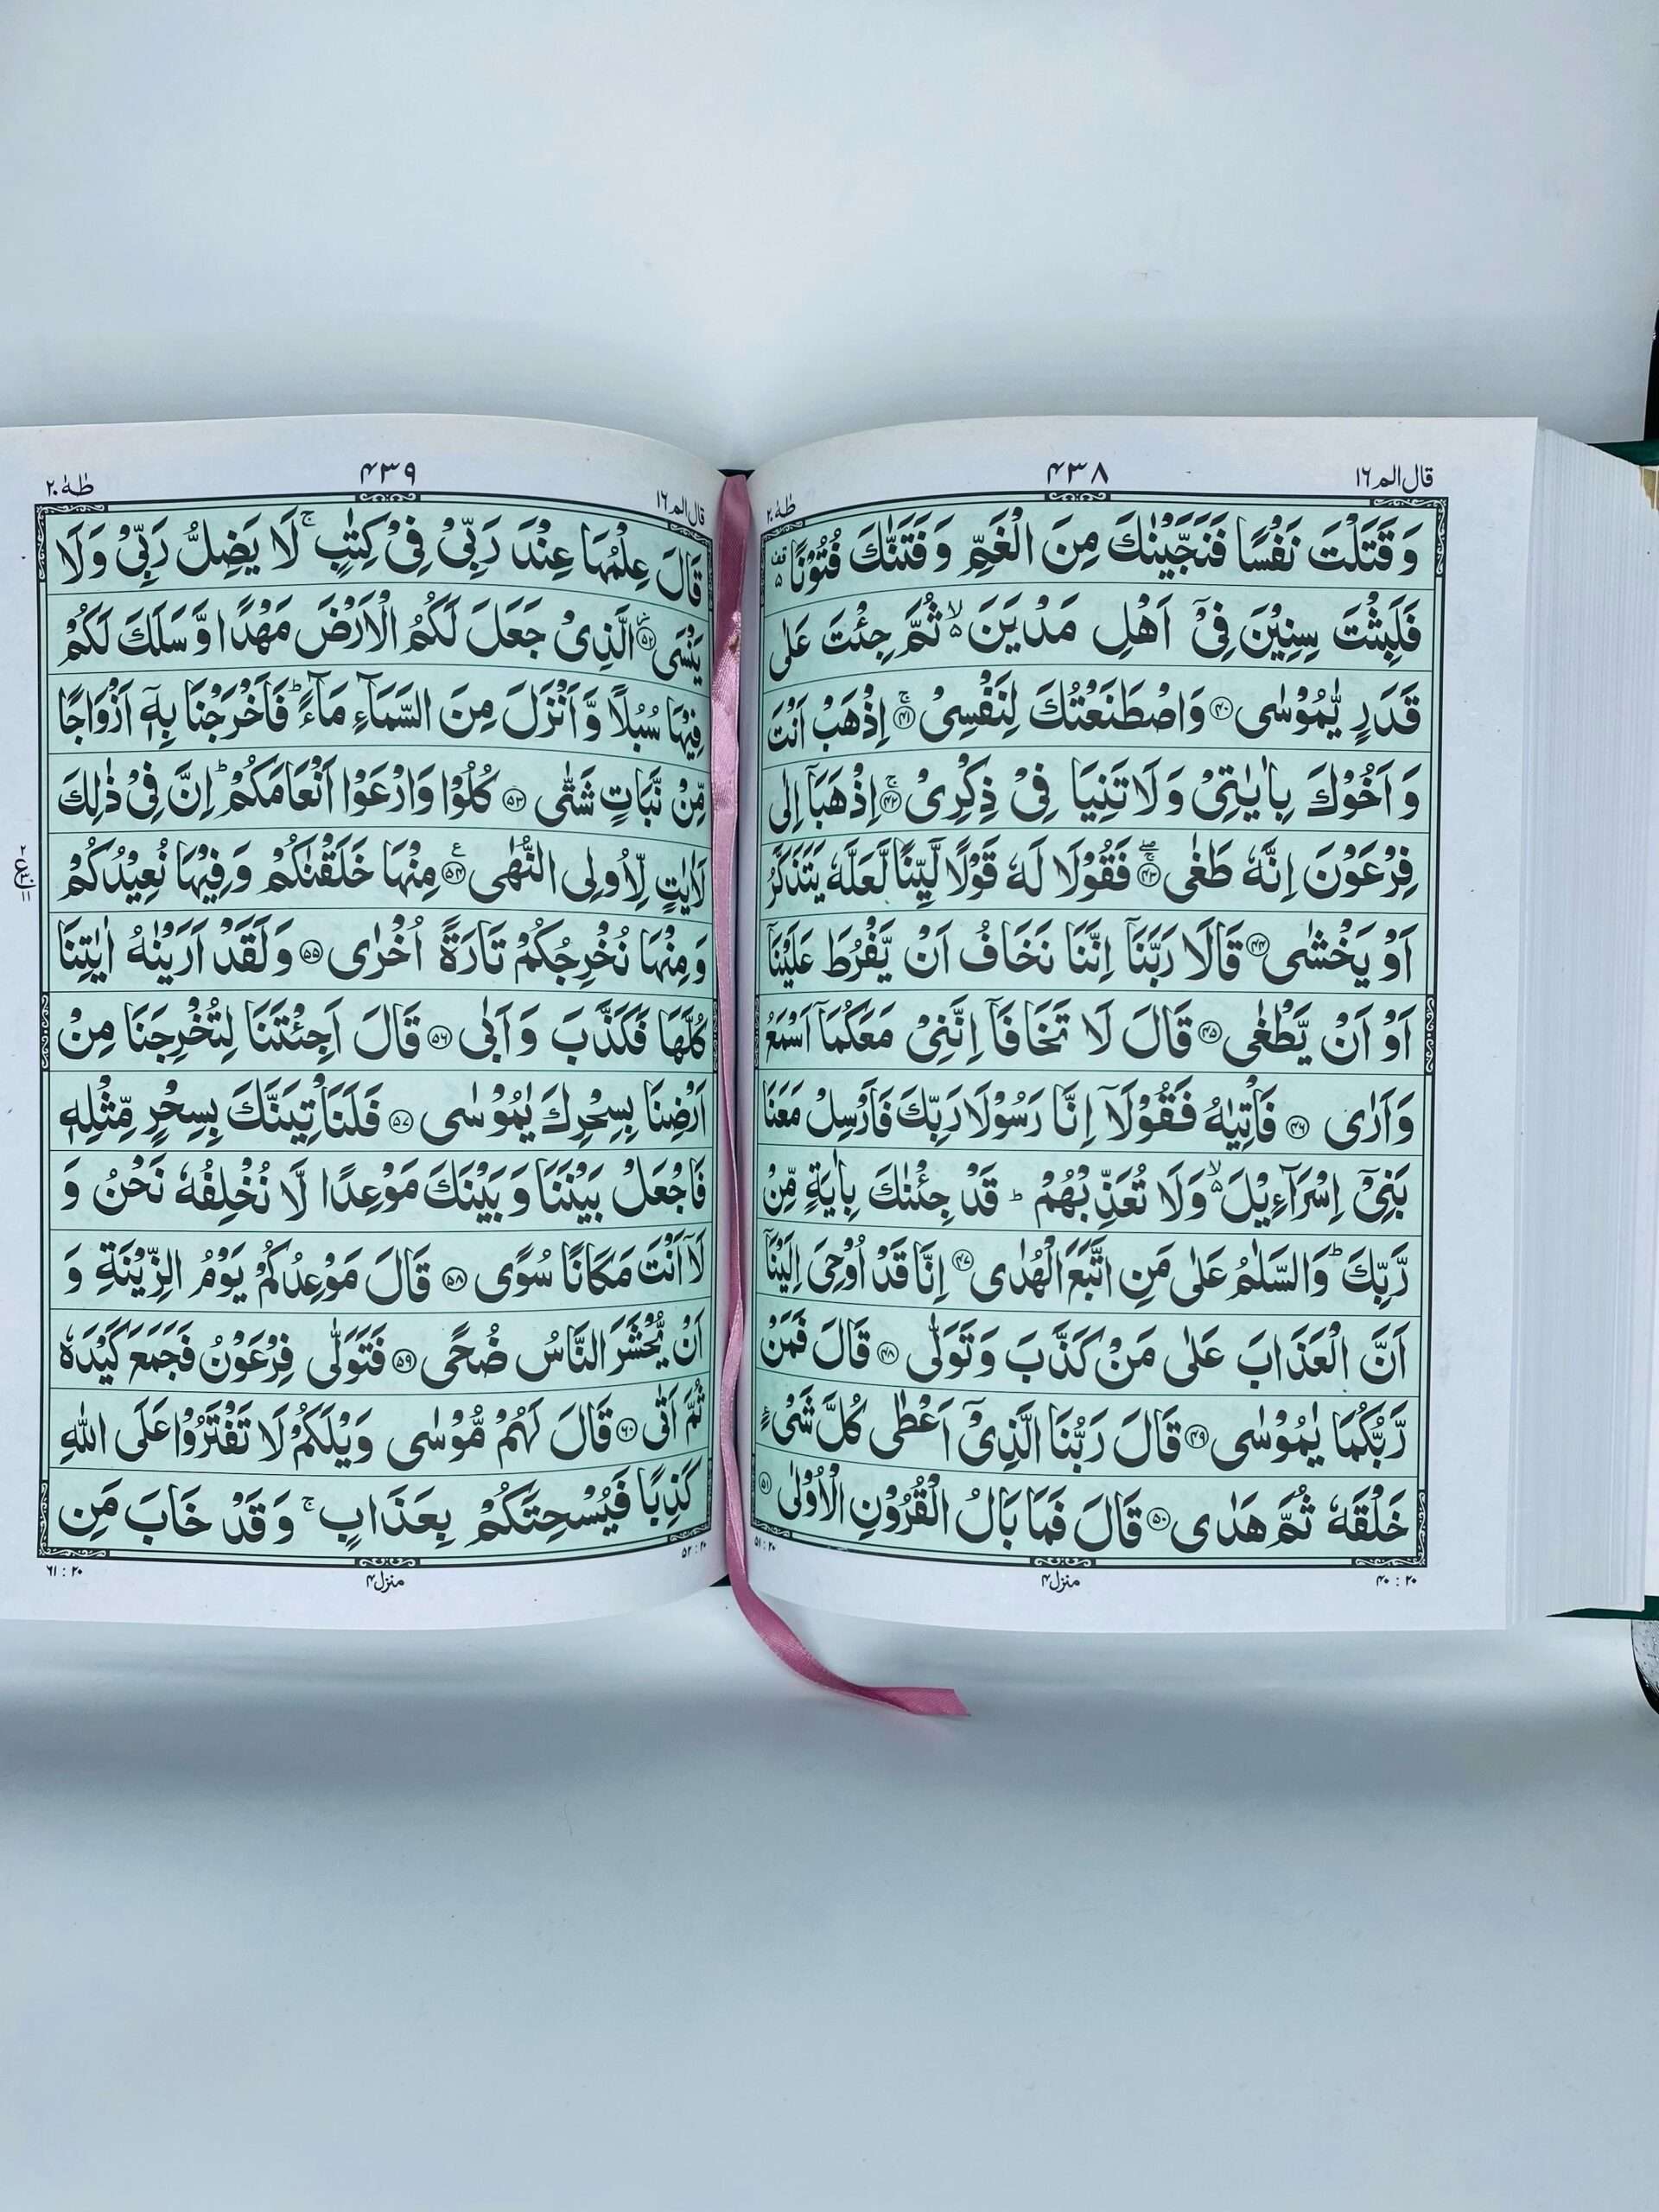 قال الم ١٦
۴۳۸
طٰهٰ ٢٠
وَ قَتَلْتَ نَفْسًا فَنَجَّيْنٰكَ مِنَ الْغَمِّ وَ فَتَنّٰكَ فُتُوْنًا
فَلَبِثْتَ سِنِيْنَ فِيْۤ اَهْلِ مَدْيَنَ ۙ۬ ثُمَّ جِئْتَ عَلٰى
قَدَرٍ يّٰمُوْسٰى ﴿۴۰﴾ وَ اصْطَنَعْتُكَ لِنَفْسِيْ ۚ﴿۴۱﴾ اِذْهَبْ اَنْتَ
وَ اَخُوْكَ بِاٰيٰتِيْ وَ لَا تَنِيَا فِيْ ذِكْرِيْ ۚ﴿۴۲﴾ اِذْهَبَاۤ اِلٰى
فِرْعَوْنَ اِنَّهٗ طَغٰى ۚ﴿۴۳﴾ فَقُوْلَا لَهٗ قَوْلًا لَّيِّنًا لَّعَلَّهٗ يَتَذَكَّرُ
اَوْ يَخْشٰى ﴿۴۴﴾ قَالَا رَبَّنَاۤ اِنَّنَا نَخَافُ اَنْ يَّفْرُطَ عَلَيْنَاۤ
اَوْ اَنْ يَّطْغٰى ﴿۴۵﴾ قَالَ لَا تَخَافَاۤ اِنَّنِيْ مَعَكُمَاۤ اَسْمَعُ
وَ اَرٰى ﴿۴۶﴾ فَاْتِيٰهُ فَقُوْلَاۤ اِنَّا رَسُوْلَا رَبِّكَ فَاَرْسِلْ مَعَنَا
بَنِيْۤ اِسْرَآءِيْلَ ۙ۬ وَ لَا تُعَذِّبْهُمْ ؕ قَدْ جِئْنٰكَ بِاٰيَةٍ مِّنْ
رَّبِّكَ ؕ وَ السَّلٰمُ عَلٰى مَنِ اتَّبَعَ الْهُدٰى ﴿۴۷﴾ اِنَّا قَدْ اُوْحِيَ اِلَيْنَاۤ
اَنَّ الْعَذَابَ عَلٰى مَنْ كَذَّبَ وَ تَوَلّٰى ﴿۴۸﴾ قَالَ فَمَنْ
رَّبُّكُمَا يٰمُوْسٰى ﴿۴۹﴾ قَالَ رَبُّنَا الَّذِيْۤ اَعْطٰى كُلَّ شَيْءٍ
خَلْقَهٗ ثُمَّ هَدٰى ﴿۵۰﴾ قَالَ فَمَا بَالُ الْقُرُوْنِ الْاُوْلٰى ﴿۵۱﴾
۲۰ : ۴۰
منزل ۴
۲۰ : ۵۱
قال الم ١٦
۴۳۹
طٰهٰ ٢٠
قَالَ عِلْمُهَا عِنْدَ رَبِّيْ فِيْ كِتٰبٍ ۚ لَا يَضِلُّ رَبِّيْ وَ لَا
يَنْسَى ﴿۵۲﴾ الَّذِيْ جَعَلَ لَكُمُ الْاَرْضَ مَهْدًا وَّ سَلَكَ لَكُمْ
فِيْهَا سُبُلًا وَّ اَنْزَلَ مِنَ السَّمَآءِ مَآءً ؕ فَاَخْرَجْنَا بِهٖۤ اَزْوَاجًا
مِّنْ نَّبَاتٍ شَتّٰى ﴿۵۳﴾ كُلُوْا وَ ارْعَوْا اَنْعَامَكُمْ ؕ اِنَّ فِيْ ذٰلِكَ
لَاٰيٰتٍ لِّاُولِي النُّهٰى ﴿۵۴﴾ مِنْهَا خَلَقْنٰكُمْ وَ فِيْهَا نُعِيْدُكُمْ
وَ مِنْهَا نُخْرِجُكُمْ تَارَةً اُخْرٰى ﴿۵۵﴾ وَ لَقَدْ اَرَيْنٰهُ اٰيٰتِنَا
كُلَّهَا فَكَذَّبَ وَ اَبٰى ﴿۵۶﴾ قَالَ اَجِئْتَنَا لِتُخْرِجَنَا مِنْ
اَرْضِنَا بِسِحْرِكَ يٰمُوْسٰى ﴿۵۷﴾ فَلَنَاْتِيَنَّكَ بِسِحْرٍ مِّثْلِهٖ
فَاجْعَلْ بَيْنَنَا وَ بَيْنَكَ مَوْعِدًا لَّا نُخْلِفُهٗ نَحْنُ وَ
لَاۤ اَنْتَ مَكَانًا سُوًى ﴿۵۸﴾ قَالَ مَوْعِدُكُمْ يَوْمُ الزِّيْنَةِ وَ
اَنْ يُّحْشَرَ النَّاسُ ضُحًى ﴿۵۹﴾ فَتَوَلّٰى فِرْعَوْنُ فَجَمَعَ كَيْدَهٗ
ثُمَّ اَتٰى ﴿۶۰﴾ قَالَ لَهُمْ مُّوْسٰى وَيْلَكُمْ لَا تَفْتَرُوْا عَلَى اللّٰهِ
كَذِبًا فَيُسْحِتَكُمْ بِعَذَابٍ ۚ وَ قَدْ خَابَ مَنِ
۲۰ : ۵۲
منزل ۴
۲۰ : ۶۱